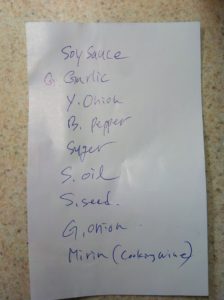 Soy Sauce
G Garlic
Y. Onion
B. Pepper
Suger
S. oil
S. seed.
G. onion
Mirin (Cooking wine)